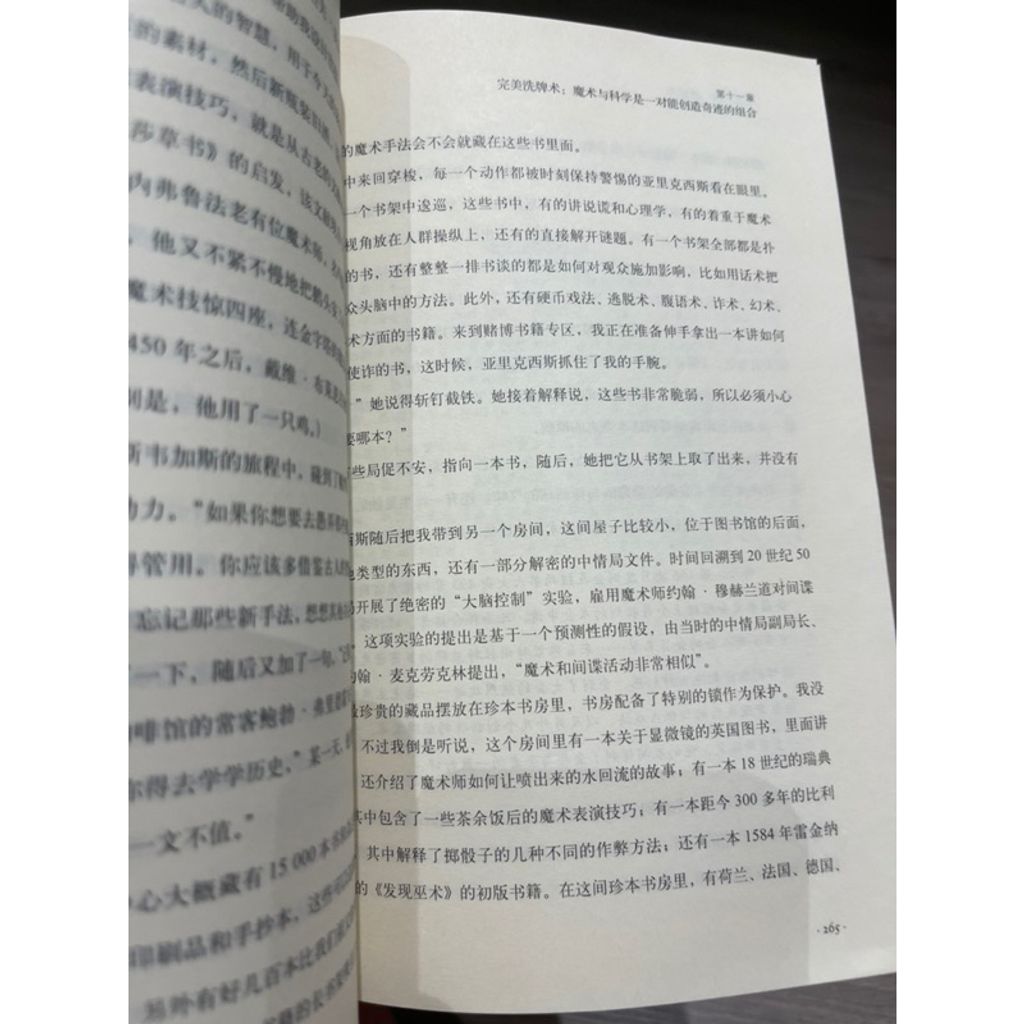 人的智慧,用于今天的
的素材,然后新瓶装旧酒
表演技巧,就是从古老的
莎草书》的启发,该文献
内弗鲁法老有位魔术师,
,他又不紧不慢地把鹅头
魔术技惊四座,连金字塔
450 年之后,戴维·布莱
别是,他用了一只鸡。)
斯韦加斯的旅程中,碰到了
力。“如果你想要去愚弄
得管用。你应该多借鉴古人
忘记那些新手法,想想其他
一下,随后又加了一句,
啡馆的常客鲍勃·弗里
你得去学学历史。”某一天,
一文不值。”
心大概藏有 15 000 本书和
印刷品和手抄本,这些
另外有好几百本比我们
第十一章
完美洗牌术:魔术与科学是一对能创造奇迹的组合
的魔术手法会不会就藏在这些书里面。
中来回穿梭,每一个动作都被时刻保持警惕的亚里克西斯看在眼里。
一个书架中逡巡,这些书中,有的讲说谎和心理学,有的着重于魔术
视角放在人群操纵上,还有的直接解开谜题。有一个书架全部都是扑
的书,还有整整一排书谈的都是如何对观众施加影响,比如用话术把
众头脑中的方法。此外,还有硬币戏法、逃脱术、腹语术、诈术、幻术、
术方面的书籍。来到赌博书籍专区,我正在准备伸手拿出一本讲如何
使诈的书,这时候,亚里克西斯抓住了我的手腕。
”她说得斩钉截铁。她接着解释说,这些书非常脆弱,所以必须小心
要哪本?”
些局促不安,指向一本书,随后,她把它从书架上取了出来,并没有
西斯随后把我带到另一个房间,这间屋子比较小,位于图书馆的后面,
他类型的东西,还有一部分解密的中情局文件。时间回溯到 20 世纪 50
局开展了绝密的“大脑控制”实验,雇用魔术师约翰·穆赫兰道对间谍
,这项实验的提出是基于一个预测性的假设,由当时的中情局副局长、
约翰·麦克劳克林提出,“魔术和间谍活动非常相似”。
最珍贵的藏品摆放在珍本书房里,书房配备了特别的锁作为保护。我没
不过我倒是听说,这个房间里有一本关于显微镜的英国图书,里面讲
还介绍了魔术师如何让喷出来的水回流的故事;有一本 18 世纪的瑞典
其中包含了一些茶余饭后的魔术表演技巧;有一本距今 300 多年的比利
,其中解释了掷骰子的几种不同的作弊方法;还有一本 1584 年雷金纳
的《发现巫术》的初版书籍。在这间珍本书房里,有荷兰、法国、德国、
·265·